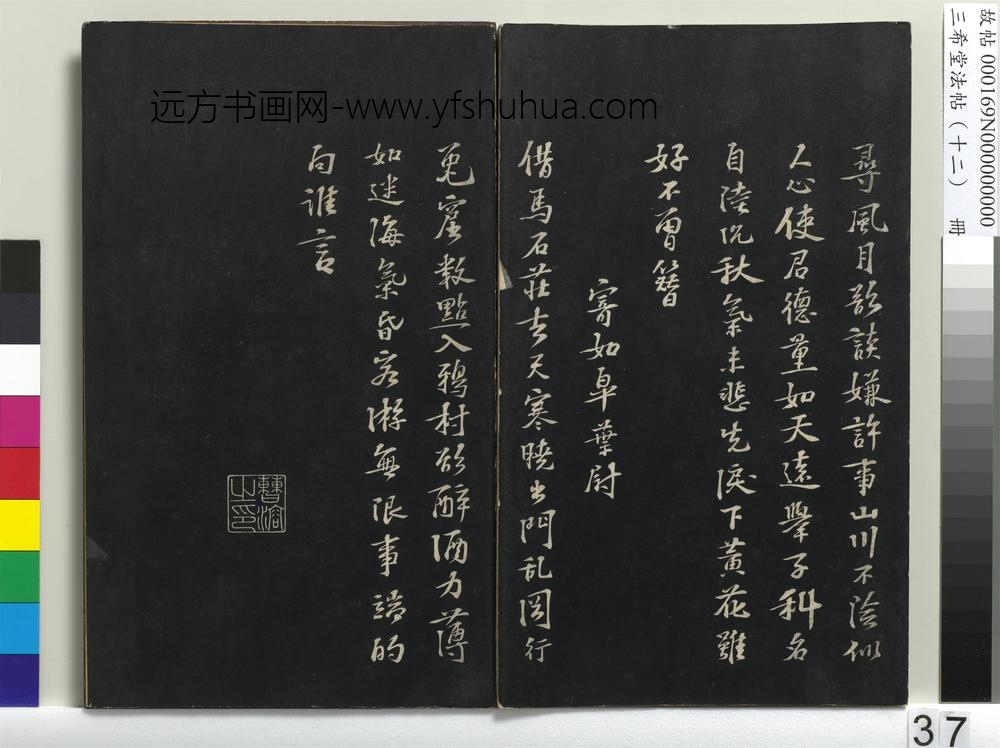 远方书画网-www.yfshuhua.com
故帖 000169N000000000
三希堂法帖（十二） 冊
尋風月敀談嫌許事山川不險似
人心使君德量如天遠舉子科名
自陸沉秋氣未悲先淚下黃花雖
好不曾簪
寄如皋葉尉
借馬石莊去天寒曉出門乱岡行
兎窟数點入鴉村欲醉酒力薄
如迷海氣昏客游無限事端的
向誰言
37